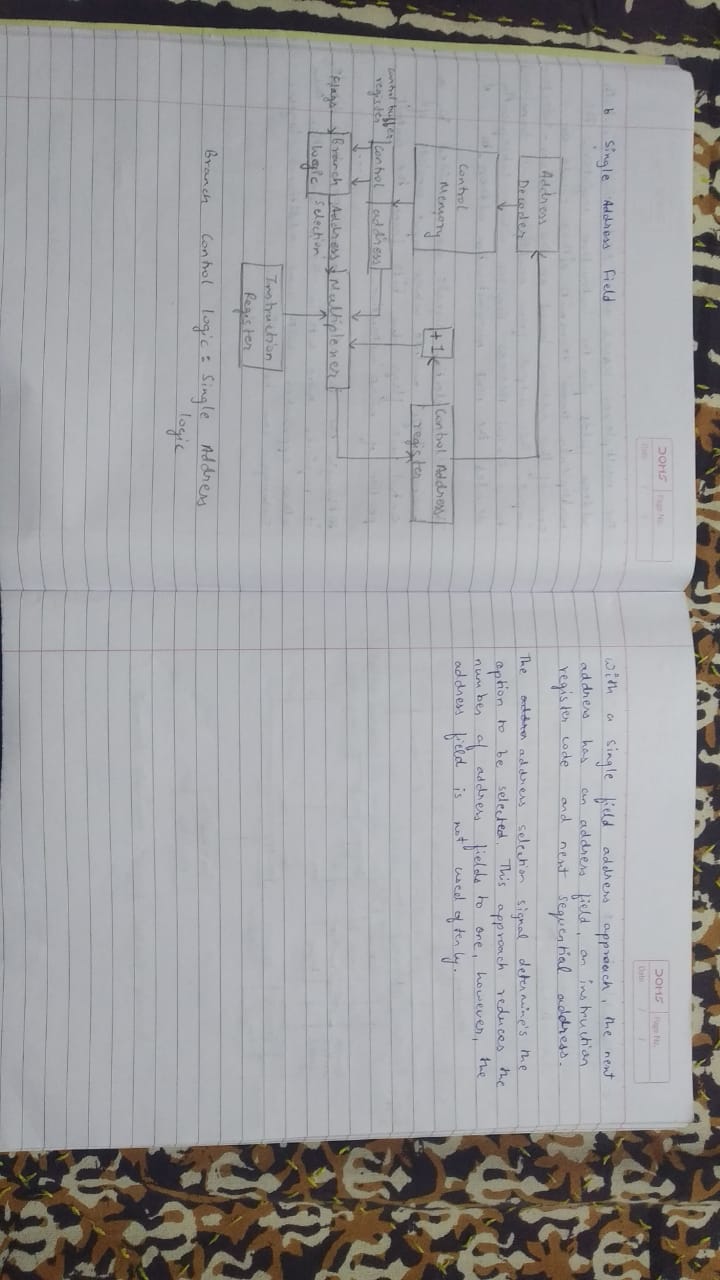 DOMS Page No.
Date / /
b Single Address Field
Address
Decoder
Control
Memory
+1
Control Address
register
Control buffer
register
Control address
Flags
Branch
logic
Address
Selection
Multiplexer
Instruction
Register
Branch Control logic: Single Address
logic
DOMS Page No.
Date / /
With a single field address approach, the next
address has an address field, an instruction
register code and next sequential address.
The address selection signal determine's the
option to be selected. This approach reduces the
number of address fields to one, however, the
address field is not used oftenly.